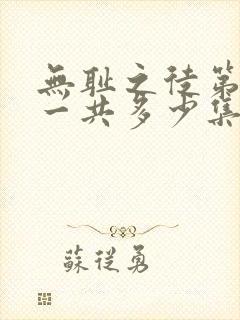 無耻之徒第
一共多少集
蘇從勇